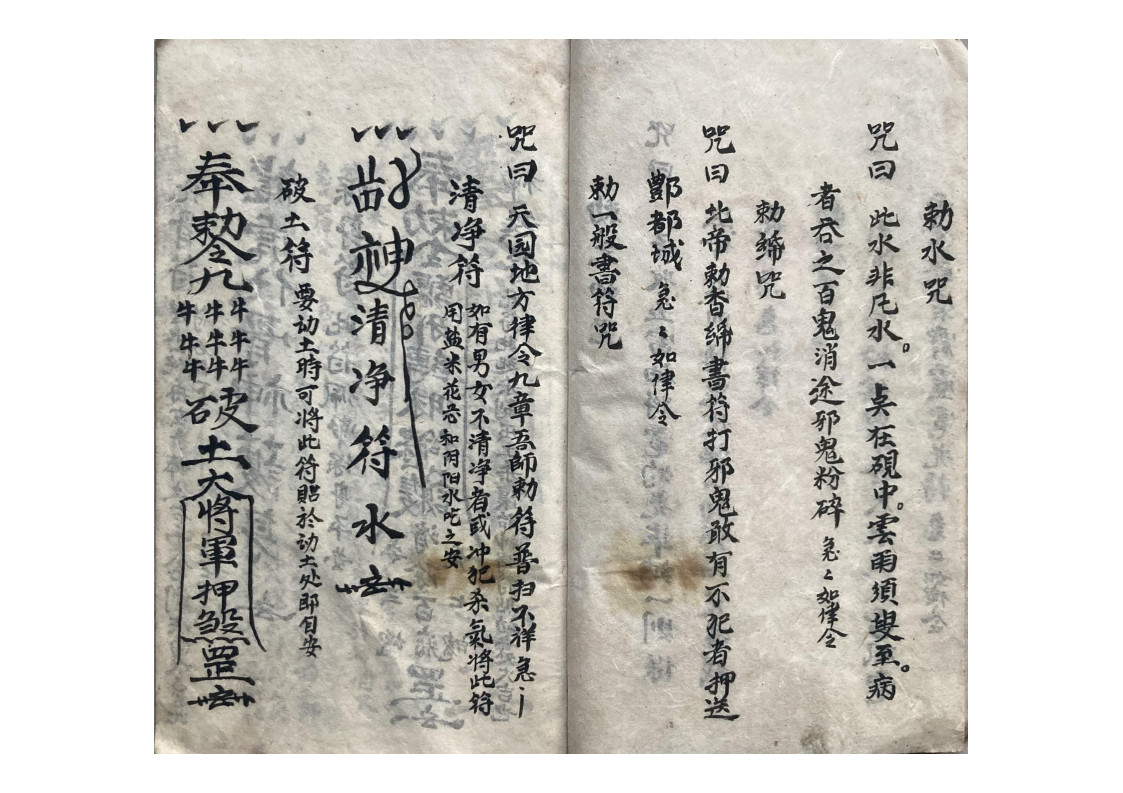 勅水咒
咒曰 此水非凡水。一点在硯中。雲雨須臾至。病
者吞之百鬼消途邪鬼粉碎 急〻如律令
勅締咒
咒曰 北帝勅香締書符打邪鬼敢有不犯者押送
酆都城 急〻如律令
勅一般書符咒
咒曰 天园地方律令九章吾師勅符普扫不祥急〻
清净符 如有男女不清净者或冲犯杀氣將此符
用盐米花茶和阴阳水吃之安
神清净符水
破土符 要动土時可将此符貼於动土处即自安
奉勅令九
牛牛牛
牛牛牛
牛牛牛
破土大將軍押煞罡